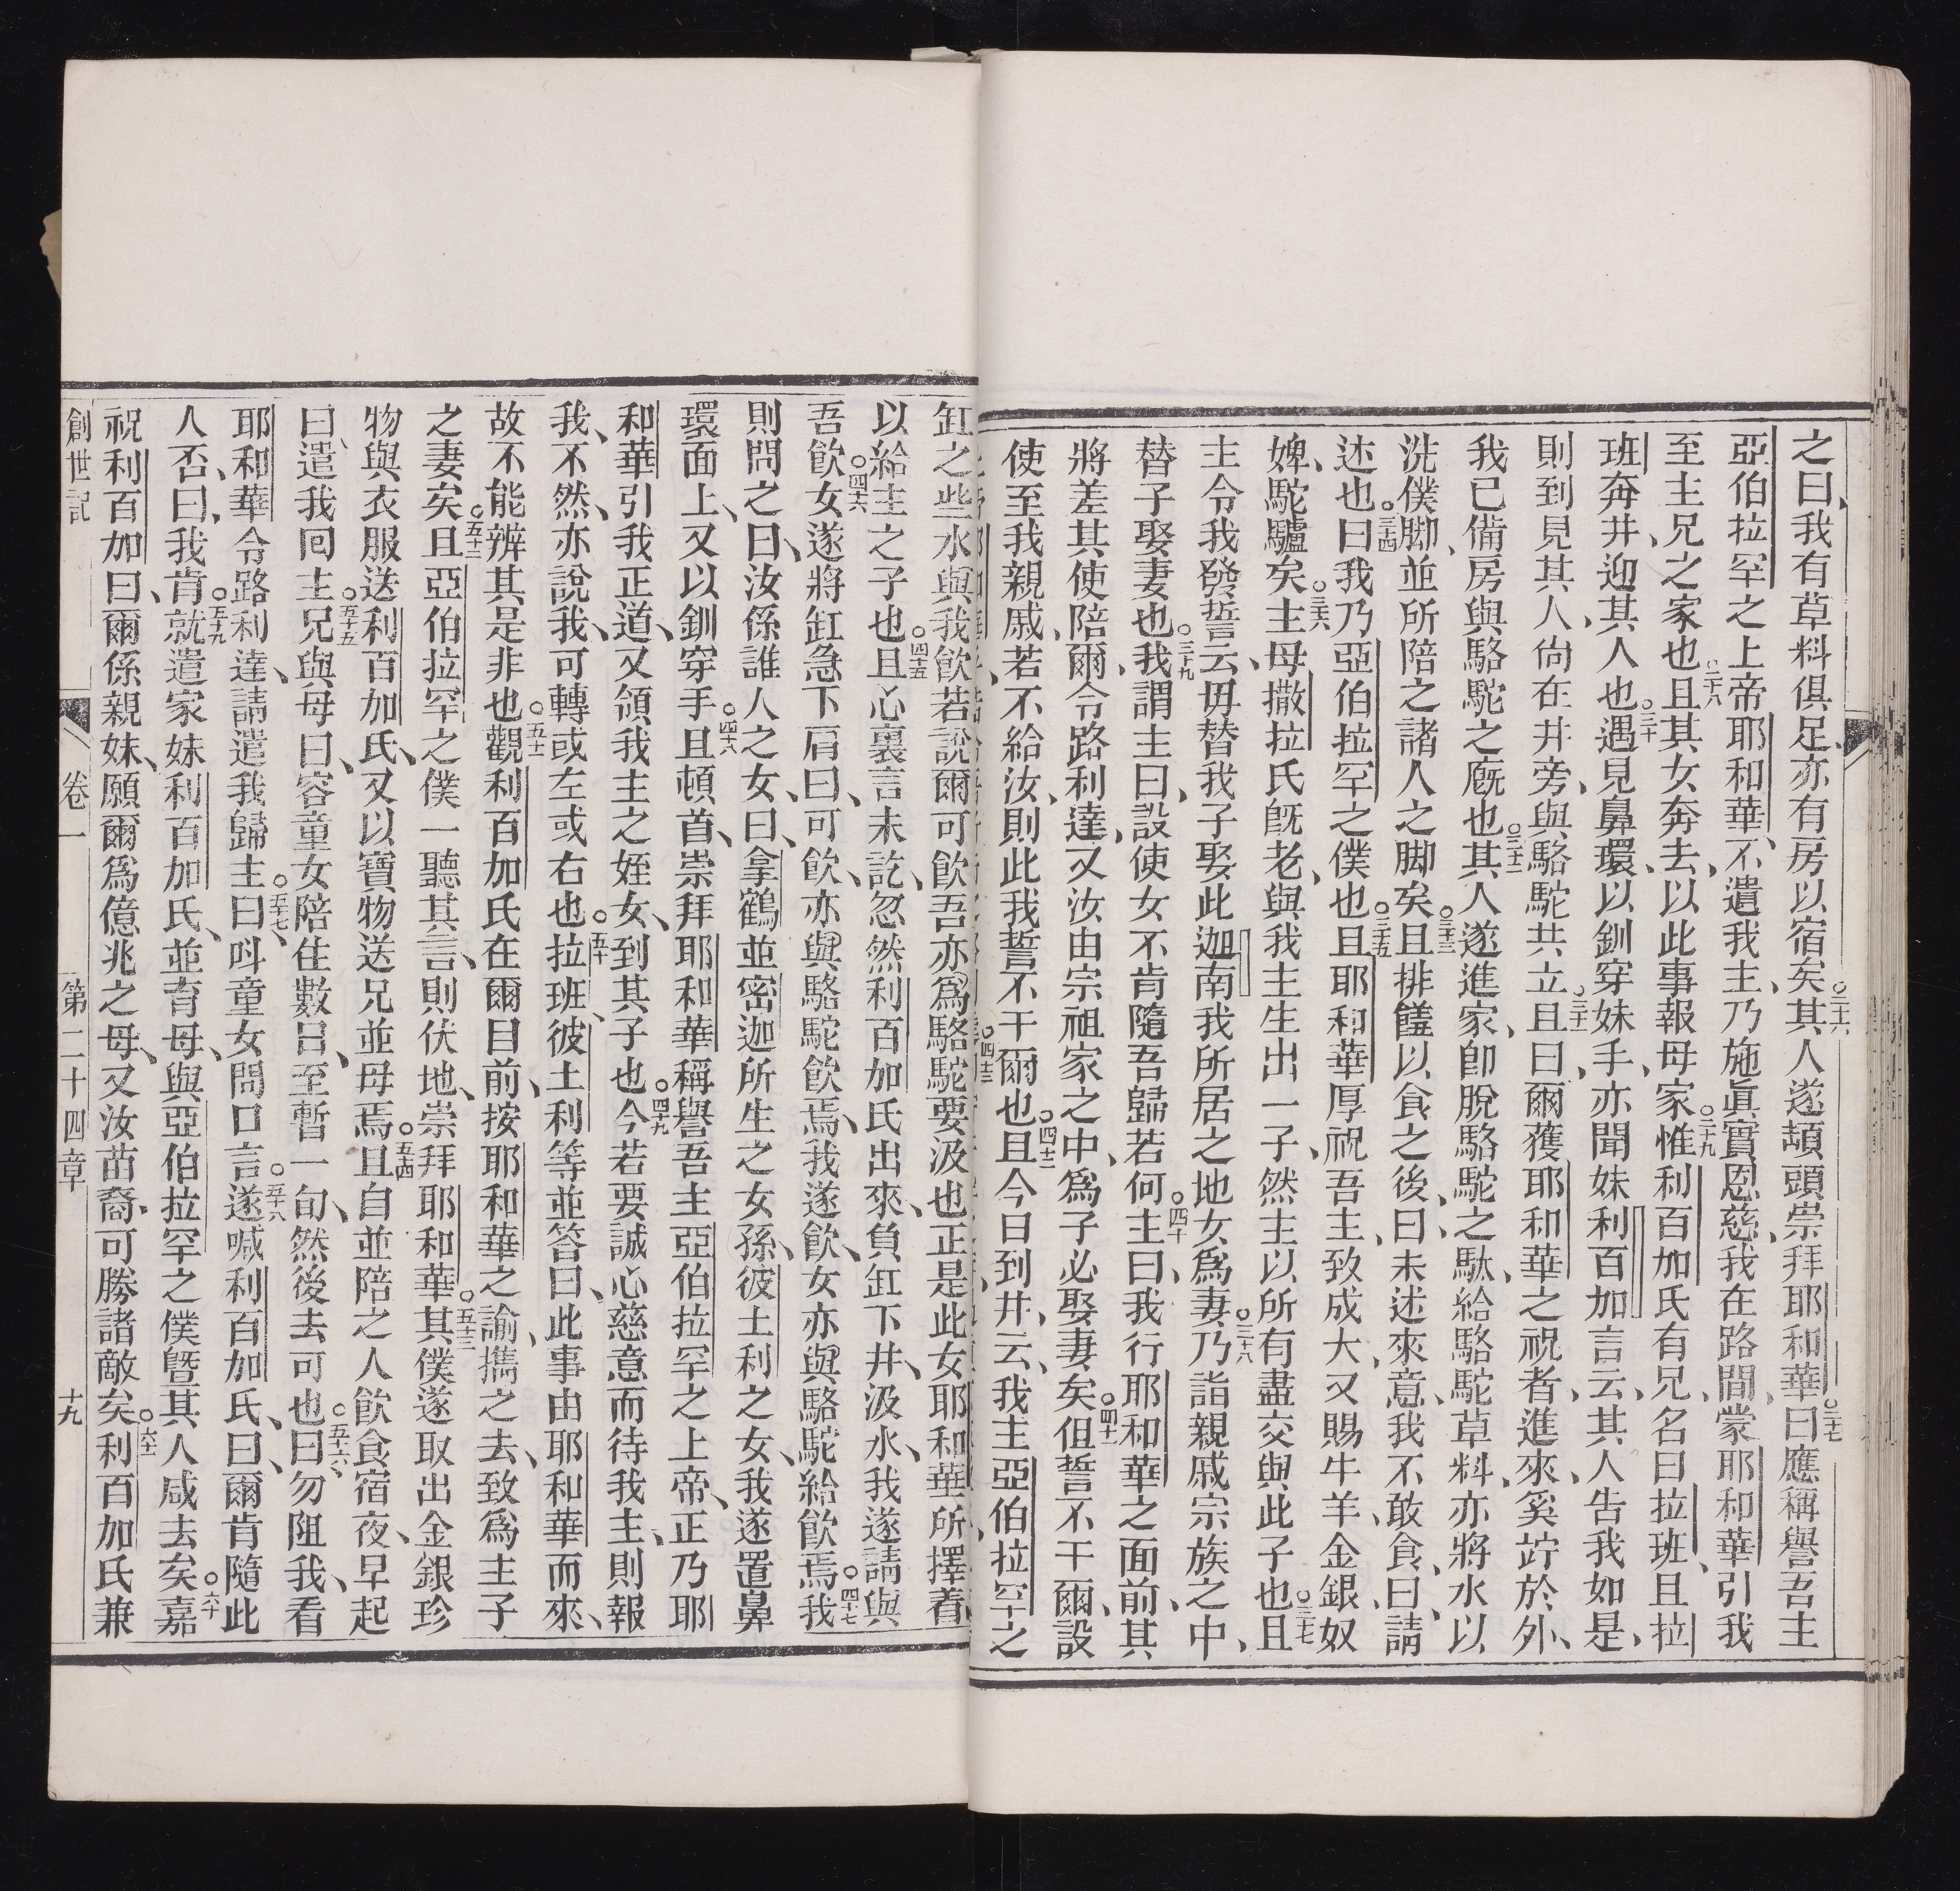 之曰、我有草料俱足、亦有房以宿矣○二十六其人遂頡頭崇拜耶和華○二十七曰應稱譽吾主
亞伯拉罕之上帝耶和華、不遺我主、乃施眞實恩慈、我在路間、蒙耶和華引我
至主兄之家也○二十八且其女奔去、以此事報母家○二十九惟利百加氏有兄、名曰拉班、且拉
班奔井、迎其人也○三十遇見鼻環、以釧穿妹手、亦聞妹利百加言云、其人告我如是、
則到見其人、尙在井旁、與駱駝共立○三十一且曰、爾獲耶和華之祝者、進來、奚竚於外、
我已備房與駱駝之廐也○三十二其人遂進家、卽脫駱駝之馱、給駱駝草料、亦將水以
洗僕脚、並所陪之諸人之脚矣○三十三且排饈以食之後、曰、未述來意、我不敢食、曰、請
述也○三十四曰我乃亞伯拉罕之僕也○三十五且耶和華厚祝吾主、致成大、又賜牛羊、金銀、奴
婢、駝驢矣○三十六主母撒拉氏旣老、與我主生出一子、然主以所有盡交與此子也○三十七且
主令我發誓云、毋替我子娶此迦南我所居之地女爲妻○三十八乃詣親戚宗族之中、
替子娶妻也○三十九我謂主曰、設使女不肯隨吾歸若何○四十主曰、我行耶和華之面前、其
將差其使陪爾、令路利達、又汝由宗祖家之中、爲子必娶妻矣○四十一但誓不干爾、設
使至我親戚、若不給汝、則此我誓不干爾也○四十二且今日到井、云、我主亞伯拉罕之
缸之些水與我飮若說爾可飮吾亦爲駱駝要汲也正是此女耶和華所擇着
以給主之子也○四十五且心裏言未訖、忽然利百加氏出來、負缸下井、汲水、我遂請與
吾飮○四十六女遂將缸急下肩曰、可飮、亦與駱駝飮焉、我遂飮、女亦與駱駝給飮焉○四十七我
則問之曰、汝係誰人之女、曰、拿鶴並密迦所生之女孫、彼土利之女、我遂置鼻
環面上、又以釧穿手○四十八且頓首、崇拜耶和華、稱譽吾主亞伯拉罕之上帝、正乃耶
和華引我正道、又領我主之姪女、到其子也○四十九今若要誠心慈意而待我主、則報
我、不然、亦說我、可轉或左或右也○五十拉班、彼土利等並答曰、此事由耶和華而來、
故不能辨其是非也○五十一觀利百加氏在爾目前、按耶和華之諭、攜之去、致爲主子
之妻矣○五十二且亞伯拉罕之僕一聽其言、則伏地、崇拜耶和華○五十三其僕遂取出金銀珍
物與衣服送利百加氏、又以寶物送兄並母焉○五十四且自並陪之人飮食宿夜、早起
曰、遣我囘主○五十五兄與母曰、容童女陪住數日、至暫一旬、然後去可也○五十六曰勿阻我、看
耶和華令路利達、請遣我歸主○五十七曰、呌童女問口言○五十八遂喊利百加氏、曰、爾肯隨此
人否、曰、我肯○五十九就遣家妹利百加氏、並育母、與亞伯拉罕之僕曁其人咸去矣○六十嘉
祝利百加曰、爾係親妹、願爾爲億兆之母、又汝苗裔、可勝諸敵矣○六十一利百加氏兼
創世記 卷一 第二十四章 十九